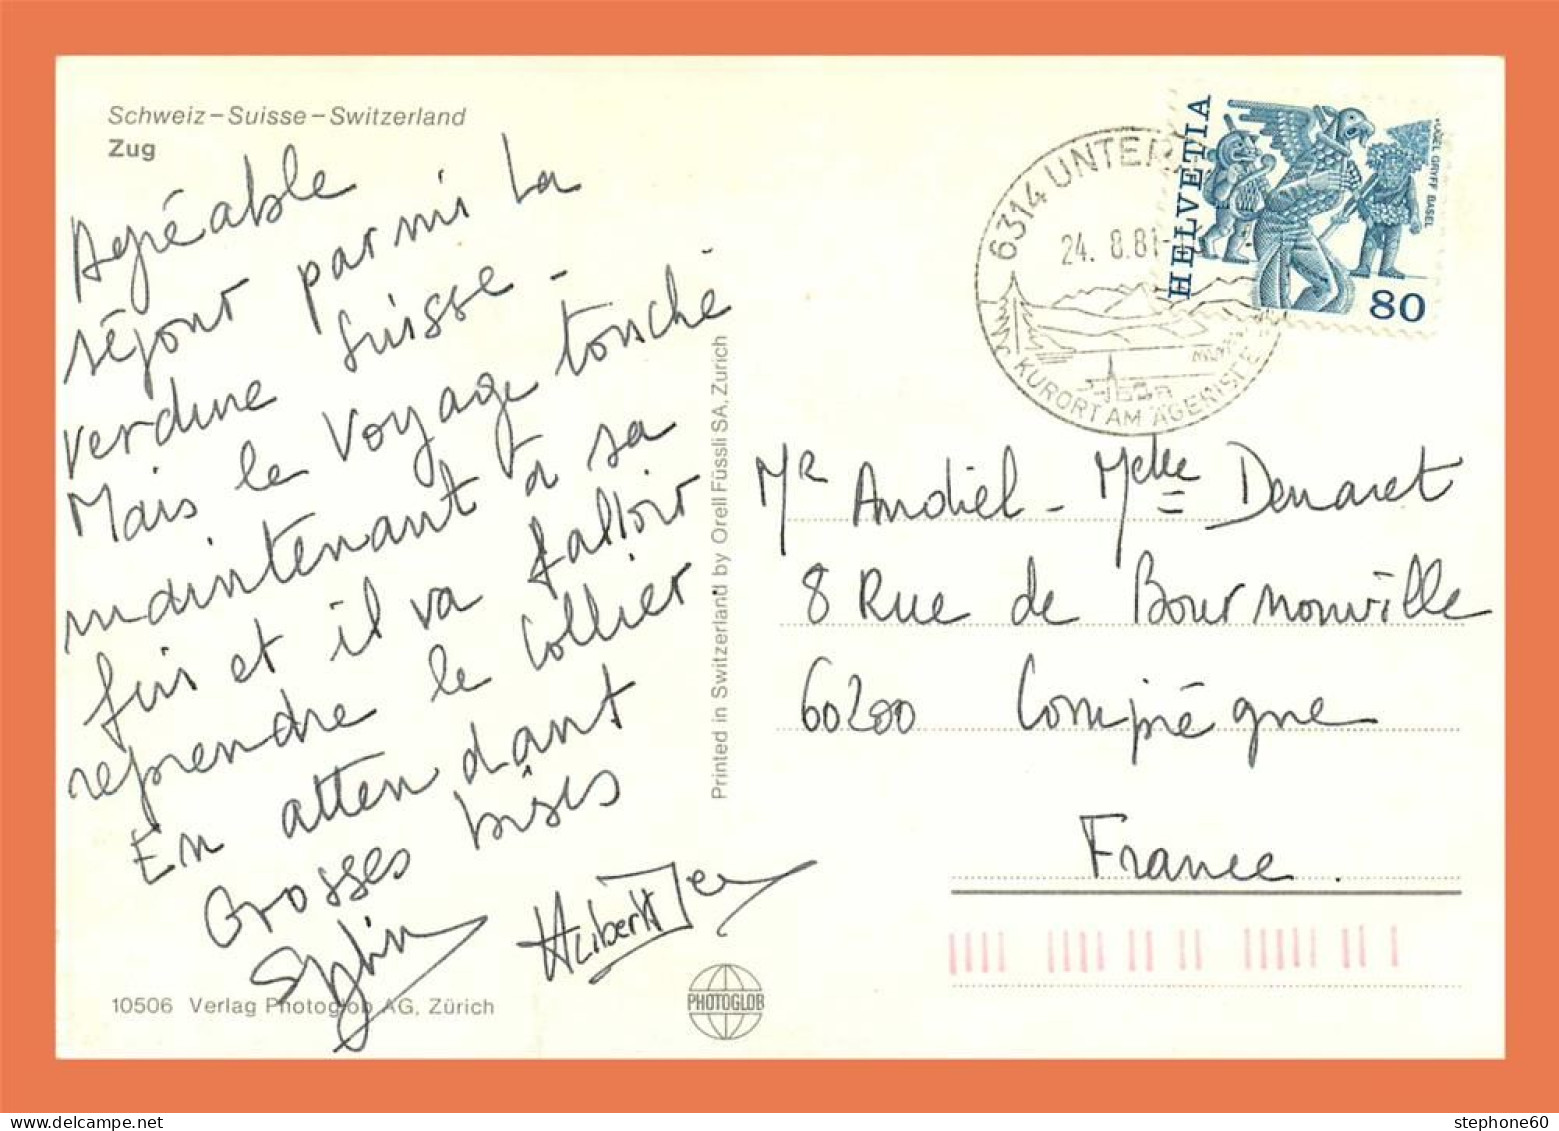 Schweiz – Suisse – Switzerland
Zug
Agréable
séjour parmi la
verdure suisse –
Mais le voyage touche
maintenant à sa
fin et il va falloir
reprendre le collier
En attendant
Grosses bises
Sylvin
Hubert
10506 Verlag Photoglob AG, Zürich
Printed in Switzerland by Orell Füssli SA, Zürich
PHOTOGLOB
6314 UNTER
24. 8.81
KURORT AM ÄGERISEE
HELVETIA
VOGEL GRYFF BASEL
80
Mr Andiel – Melle Denaret
8 Rue de Bournonville
60200 Compiégne
France.
stephone60